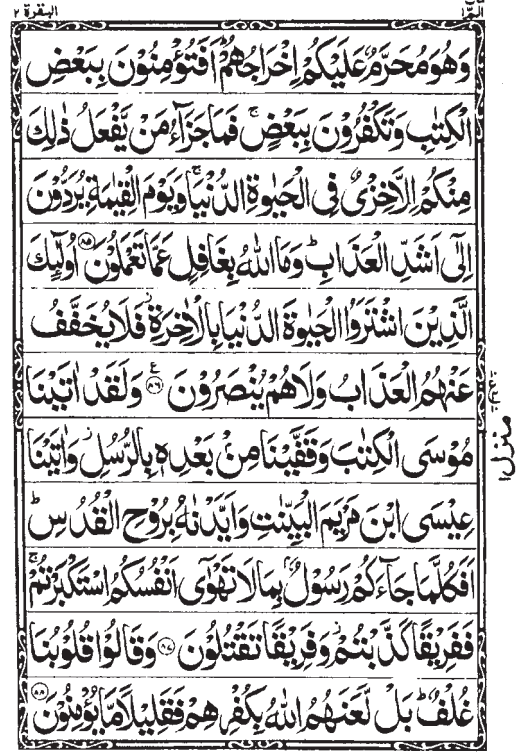 الٓمّٓ ١
البقرة ٢
وَهُوَ مُحَرَّمٌ عَلَيْكُمْ اِخْرَاجُهُمْ ؕ اَفَتُؤْمِنُوْنَ بِبَعْضِ
الْكِتٰبِ وَتَكْفُرُوْنَ بِبَعْضٍ ۚ فَمَا جَزَآءُ مَنْ يَّفْعَلُ ذٰلِكَ
مِنْكُمْ اِلَّا خِزْىٌ فِى الْحَيٰوةِ الدُّنْيَا ۚ وَيَوْمَ الْقِيٰمَةِ يُرَدُّوْنَ
اِلٰٓى اَشَدِّ الْعَذَابِ ؕ وَمَا اللّٰهُ بِغَافِلٍ عَمَّا تَعْمَلُوْنَ ﴿٨٥﴾ اُولٰٓئِكَ
الَّذِيْنَ اشْتَرَوُا الْحَيٰوةَ الدُّنْيَا بِالْاٰخِرَةِ ؗ فَلَا يُخَفَّفُ
عَنْهُمُ الْعَذَابُ وَلَا هُمْ يُنْصَرُوْنَ ﴿٨٦﴾ ع وَلَقَدْ اٰتَيْنَا
مُوْسَى الْكِتٰبَ وَقَفَّيْنَا مِنْۢ بَعْدِهٖ بِالرُّسُلِ ؗ وَاٰتَيْنَا
عِيْسَى ابْنَ مَرْيَمَ الْبَيِّنٰتِ وَاَيَّدْنٰهُ بِرُوْحِ الْقُدُسِ ؕ
اَفَكُلَّمَا جَآءَكُمْ رَسُوْلٌۢ بِمَا لَا تَهْوٰٓى اَنْفُسُكُمُ اسْتَكْبَرْتُمْ ۚ
فَفَرِيْقًا كَذَّبْتُمْ ؗ وَفَرِيْقًا تَقْتُلُوْنَ ﴿٨٧﴾ وَقَالُوْا قُلُوْبُنَا
غُلْفٌ ؕ بَلْ لَّعَنَهُمُ اللّٰهُ بِكُفْرِهِمْ فَقَلِيْلًا مَّا يُؤْمِنُوْنَ ﴿٨٨﴾
منزل ١